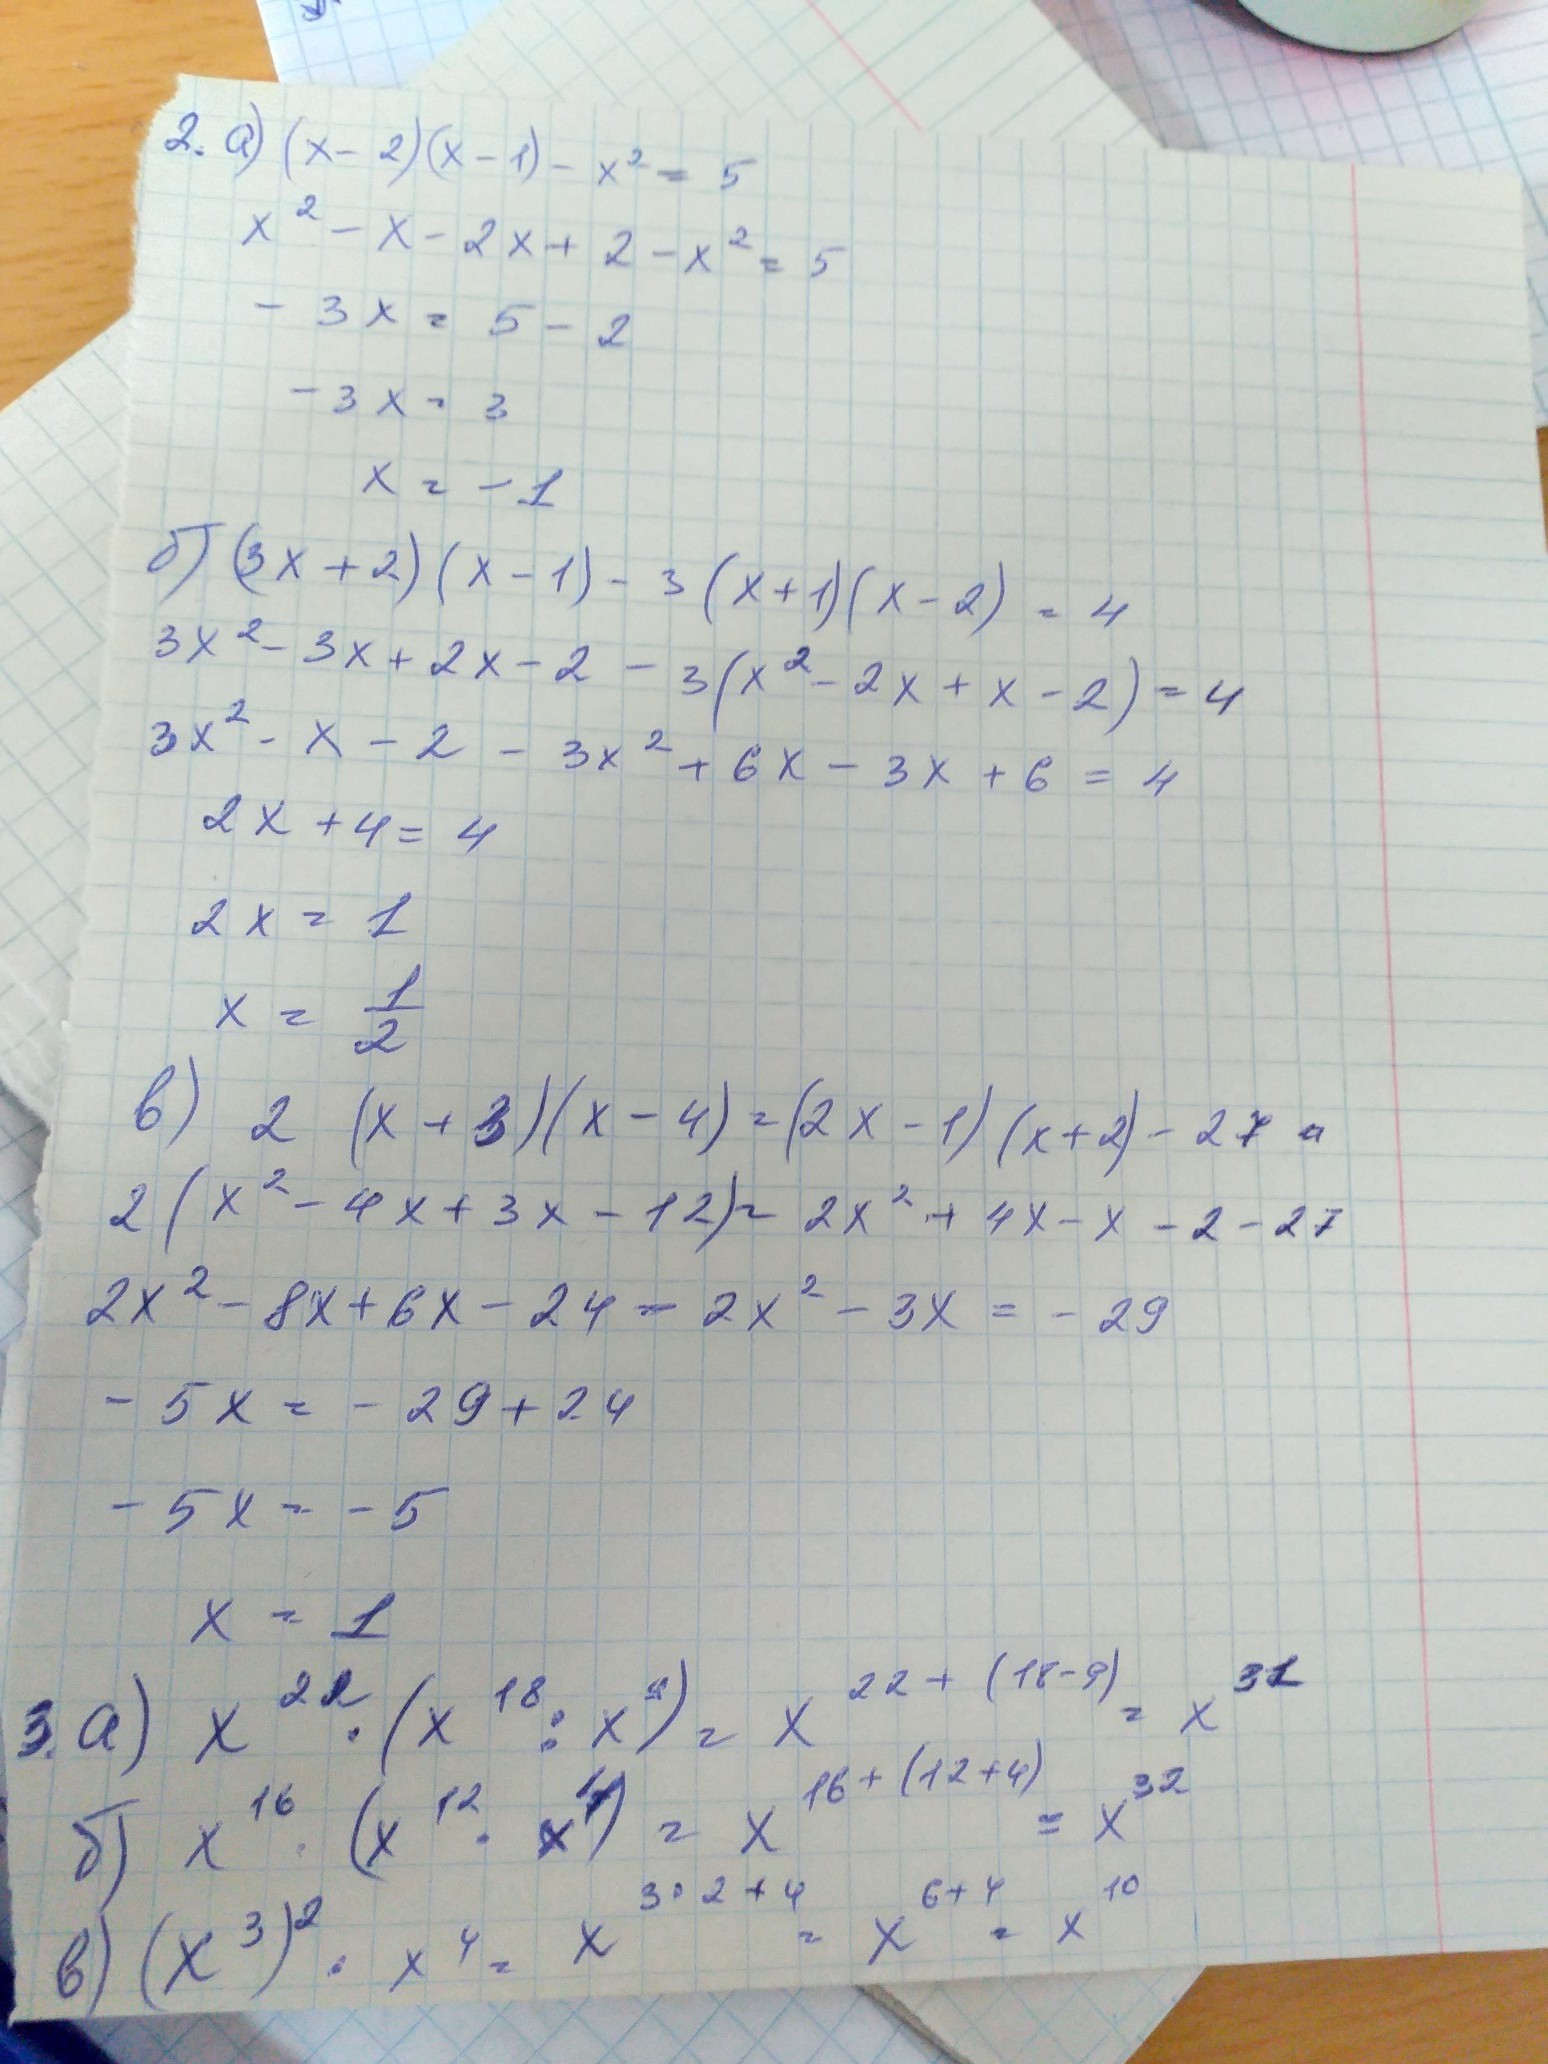 2. а) (x - 2)(x - 1) - x² = 5
x² - x - 2x + 2 - x² = 5
- 3x = 5 - 2
- 3x = 3
x = - 1
б) (3x + 2)(x - 1) - 3(x + 1)(x - 2) = 4
3x² - 3x + 2x - 2 - 3(x² - 2x + x - 2) = 4
3x² - x - 2 - 3x² + 6x - 3x + 6 = 4
2x + 4 = 4
2x = 1
x = 1/2
в) 2 (x + 3)(x - 4) = (2x - 1)(x + 2) - 27
2(x² - 4x + 3x - 12) = 2x² + 4x - x - 2 - 27
2x² - 8x + 6x - 24 - 2x² - 3x = - 29
- 5x = - 29 + 24
- 5x = - 5
x = 1
3. а) x²² · (x¹⁸ : x⁹) = x²²⁺⁽¹⁸⁻⁹⁾ = x³¹
б) x¹⁶ · (x¹² · x⁴) = x¹⁶⁺⁽¹²⁺⁴⁾ = x³²
в) (x³)² · x⁴ = x³˙²⁺⁴ = x⁶⁺⁴ = x¹⁰